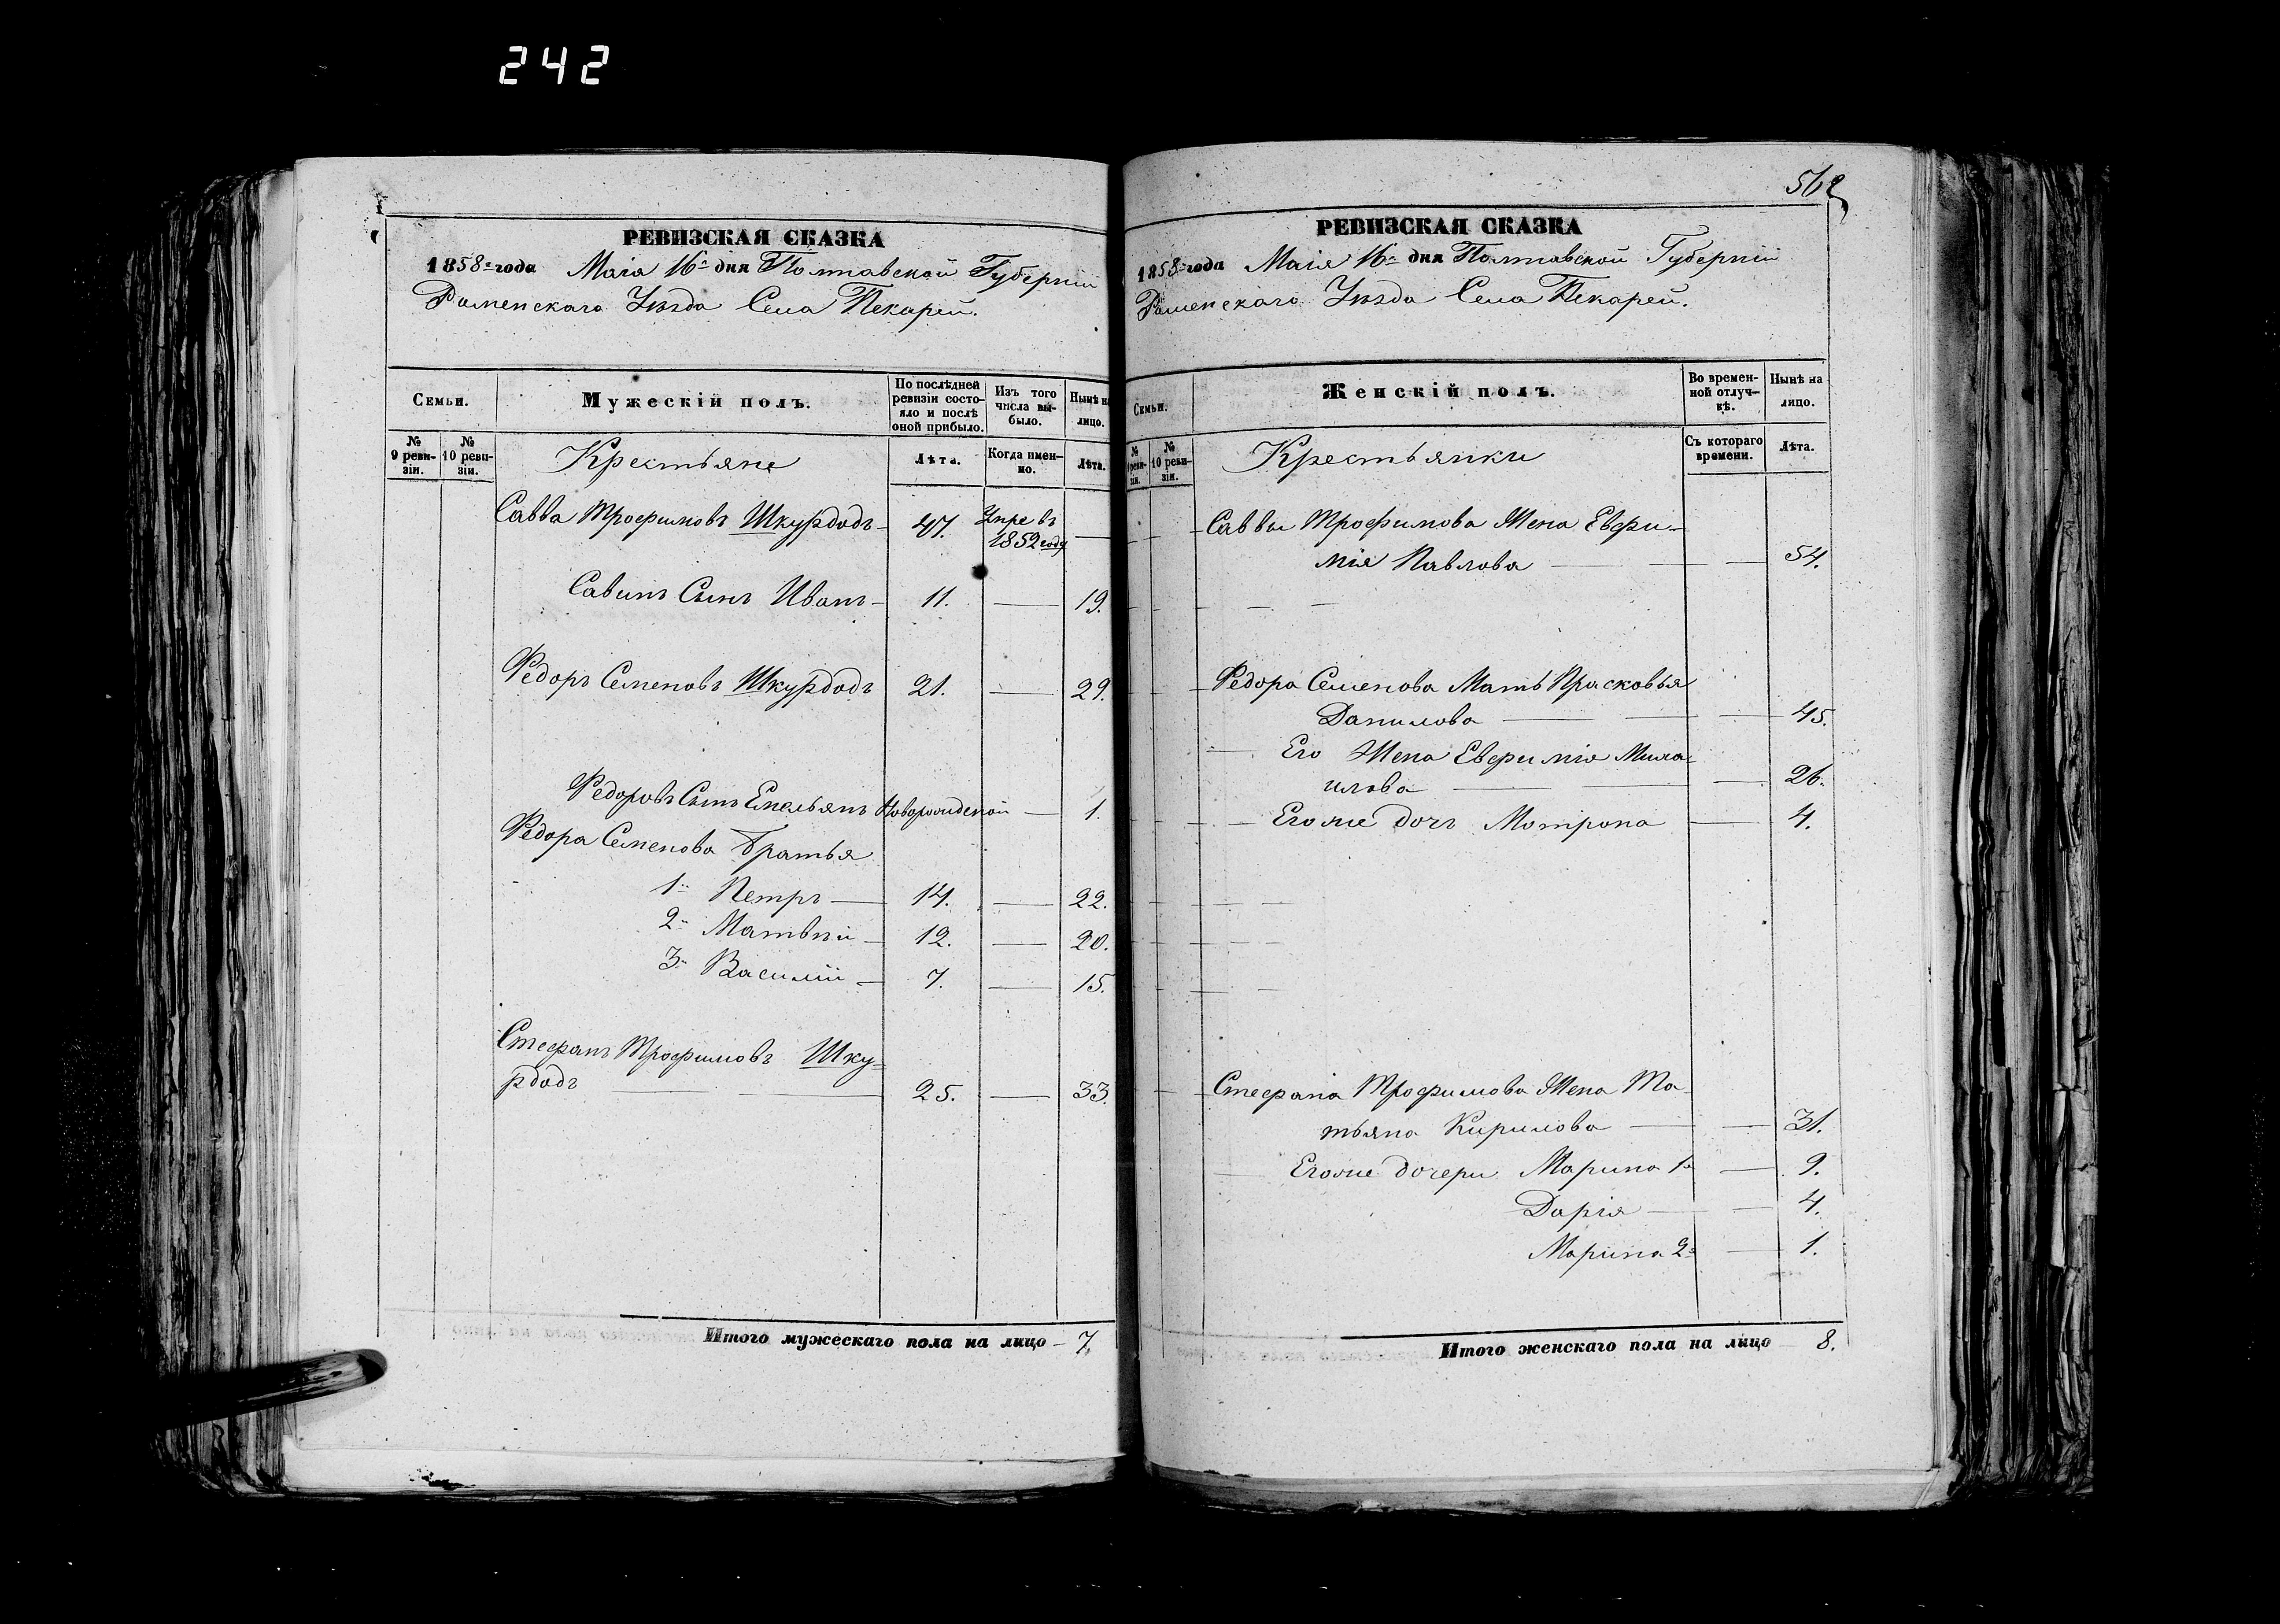 242
РЕВИЗСКАЯ СКАЗКА
1858го года Маія 16го дня Полтавской Губерніи
Роменскаго Уѣзда Села Пекарей.
Семьи.
Мужескій полъ.
По послѣдней ревизіи состояло и послѣ оной прибыло.
Изъ того числа выбыло.
Нынѣ на лицо.
№ 9 ревизіи.
№ 10 ревизіи.
Крестьяне
Лѣта.
Когда именно.
Лѣта.
Савва Трофимовъ Шкурдодъ – 47. Умре въ 1852 году —
Савинъ Сынъ Иванъ – 11. — 19.
Федоръ Семеновъ Шкурдодъ 21. — 29.
Федоровъ Сынъ Емельянъ Новорожденой — 1.
Федора Семенова Братья
1й Петръ — 14. — 22.
2й Матвѣй – 12. — 20.
3й Василій – 7. — 15.
Стефанъ Трофимовъ Шку-
рдодъ — 25. — 33.
Итого мужескаго пола на лицо – 7.
562
РЕВИЗСКАЯ СКАЗКА
1858го года Маія 16го дня Полтавской Губерніи
Роменскаго Уѣзда Села Пекарей.
Семьи.
Женскій полъ.
Во временной отлучкѣ.
Нынѣ на лицо.
№ 9 ревизіи.
№ 10 ревизіи.
Крестьянки
Съ котораго времени.
Лѣта.
Саввы Трофимова Жена Евфи-
мія Павлова — 54.
Федора Семенова Мать Прасковья
Данилова — 45.
Его Жена Евфимія Миха-
илова — 26.
Егоже дочь Мотрона — 4.
Стефана Трофимова Жена Та-
тьяна Кирилова — 31.
Егоже дочери Марина 1я — 9.
Дарія — 4.
Марина 2я — 1.
Итого женскаго пола на лицо 8.